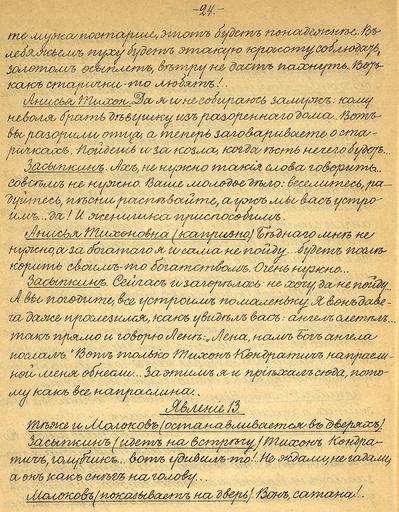 -24.-
те мужа постарше, этотъ будетъ понадежнѣе. Въ
лебяжьемъ пуху будетъ этакую красоту соблюдать,
золотомъ осыплетъ, вѣтру не дастъ пахнуть. Вотъ
какъ старички-то любятъ!.
Анисья Тихон. Да я и не собираюсь замужъ: кому
неволя брать дѣвушку изъ разореннаго дома. Вотъ
вы разорили отца, а теперь заговариваете о ста-
ричкахъ. Пойдешь и за козла, когда ѣсть нечего будетъ...
Засыпкинъ. Ахъ, не нужно такія слова говорить...
совсѣмъ не нужно. Ваше молодое дѣло: веселитесь, ра-
дуйтесь, пѣсни распѣвайте, а ужъ мы васъ устро-
имъ... да! И жениш­ка приспособимъ.
Анисья Тихоновна (капризно) Бѣднаго мнѣ не
нужно, а за богатаго я и сама не пойду... будетъ послѣ
корить своимъ-то богатствомъ. Очень нужно...
Засыпкинъ. Сейчасъ и загорѣлось: не хочу да не пойду...
А вы погодите, все устроимъ помаленьку. Я вонъ даве-
ча даже прослезился, какъ увидѣлъ васъ: ангелъ слетѣлъ...
такъ прямо и говорю Ленѣ: „Лена, намъ Богъ ангела
послалъ." Вотъ только Тихонъ Кондратичъ напрасли-
ной меня обнесли... За этимъ я и пріѣхалъ сюда, пото-
му какъ все напраслина..
Явленіе 13.
Тѣже и Молоковъ (останавливается въ дверяхъ)
Засыпкинъ (идетъ на встрѣчу) Тихонъ Кондра-
тичъ, голубчик... вотъ удивилъ-то! Не ждали, не гадали,
а онъ какъ снѣгъ на голову...
Молоковъ (показываетъ на дверь) Вонъ, сатана!.